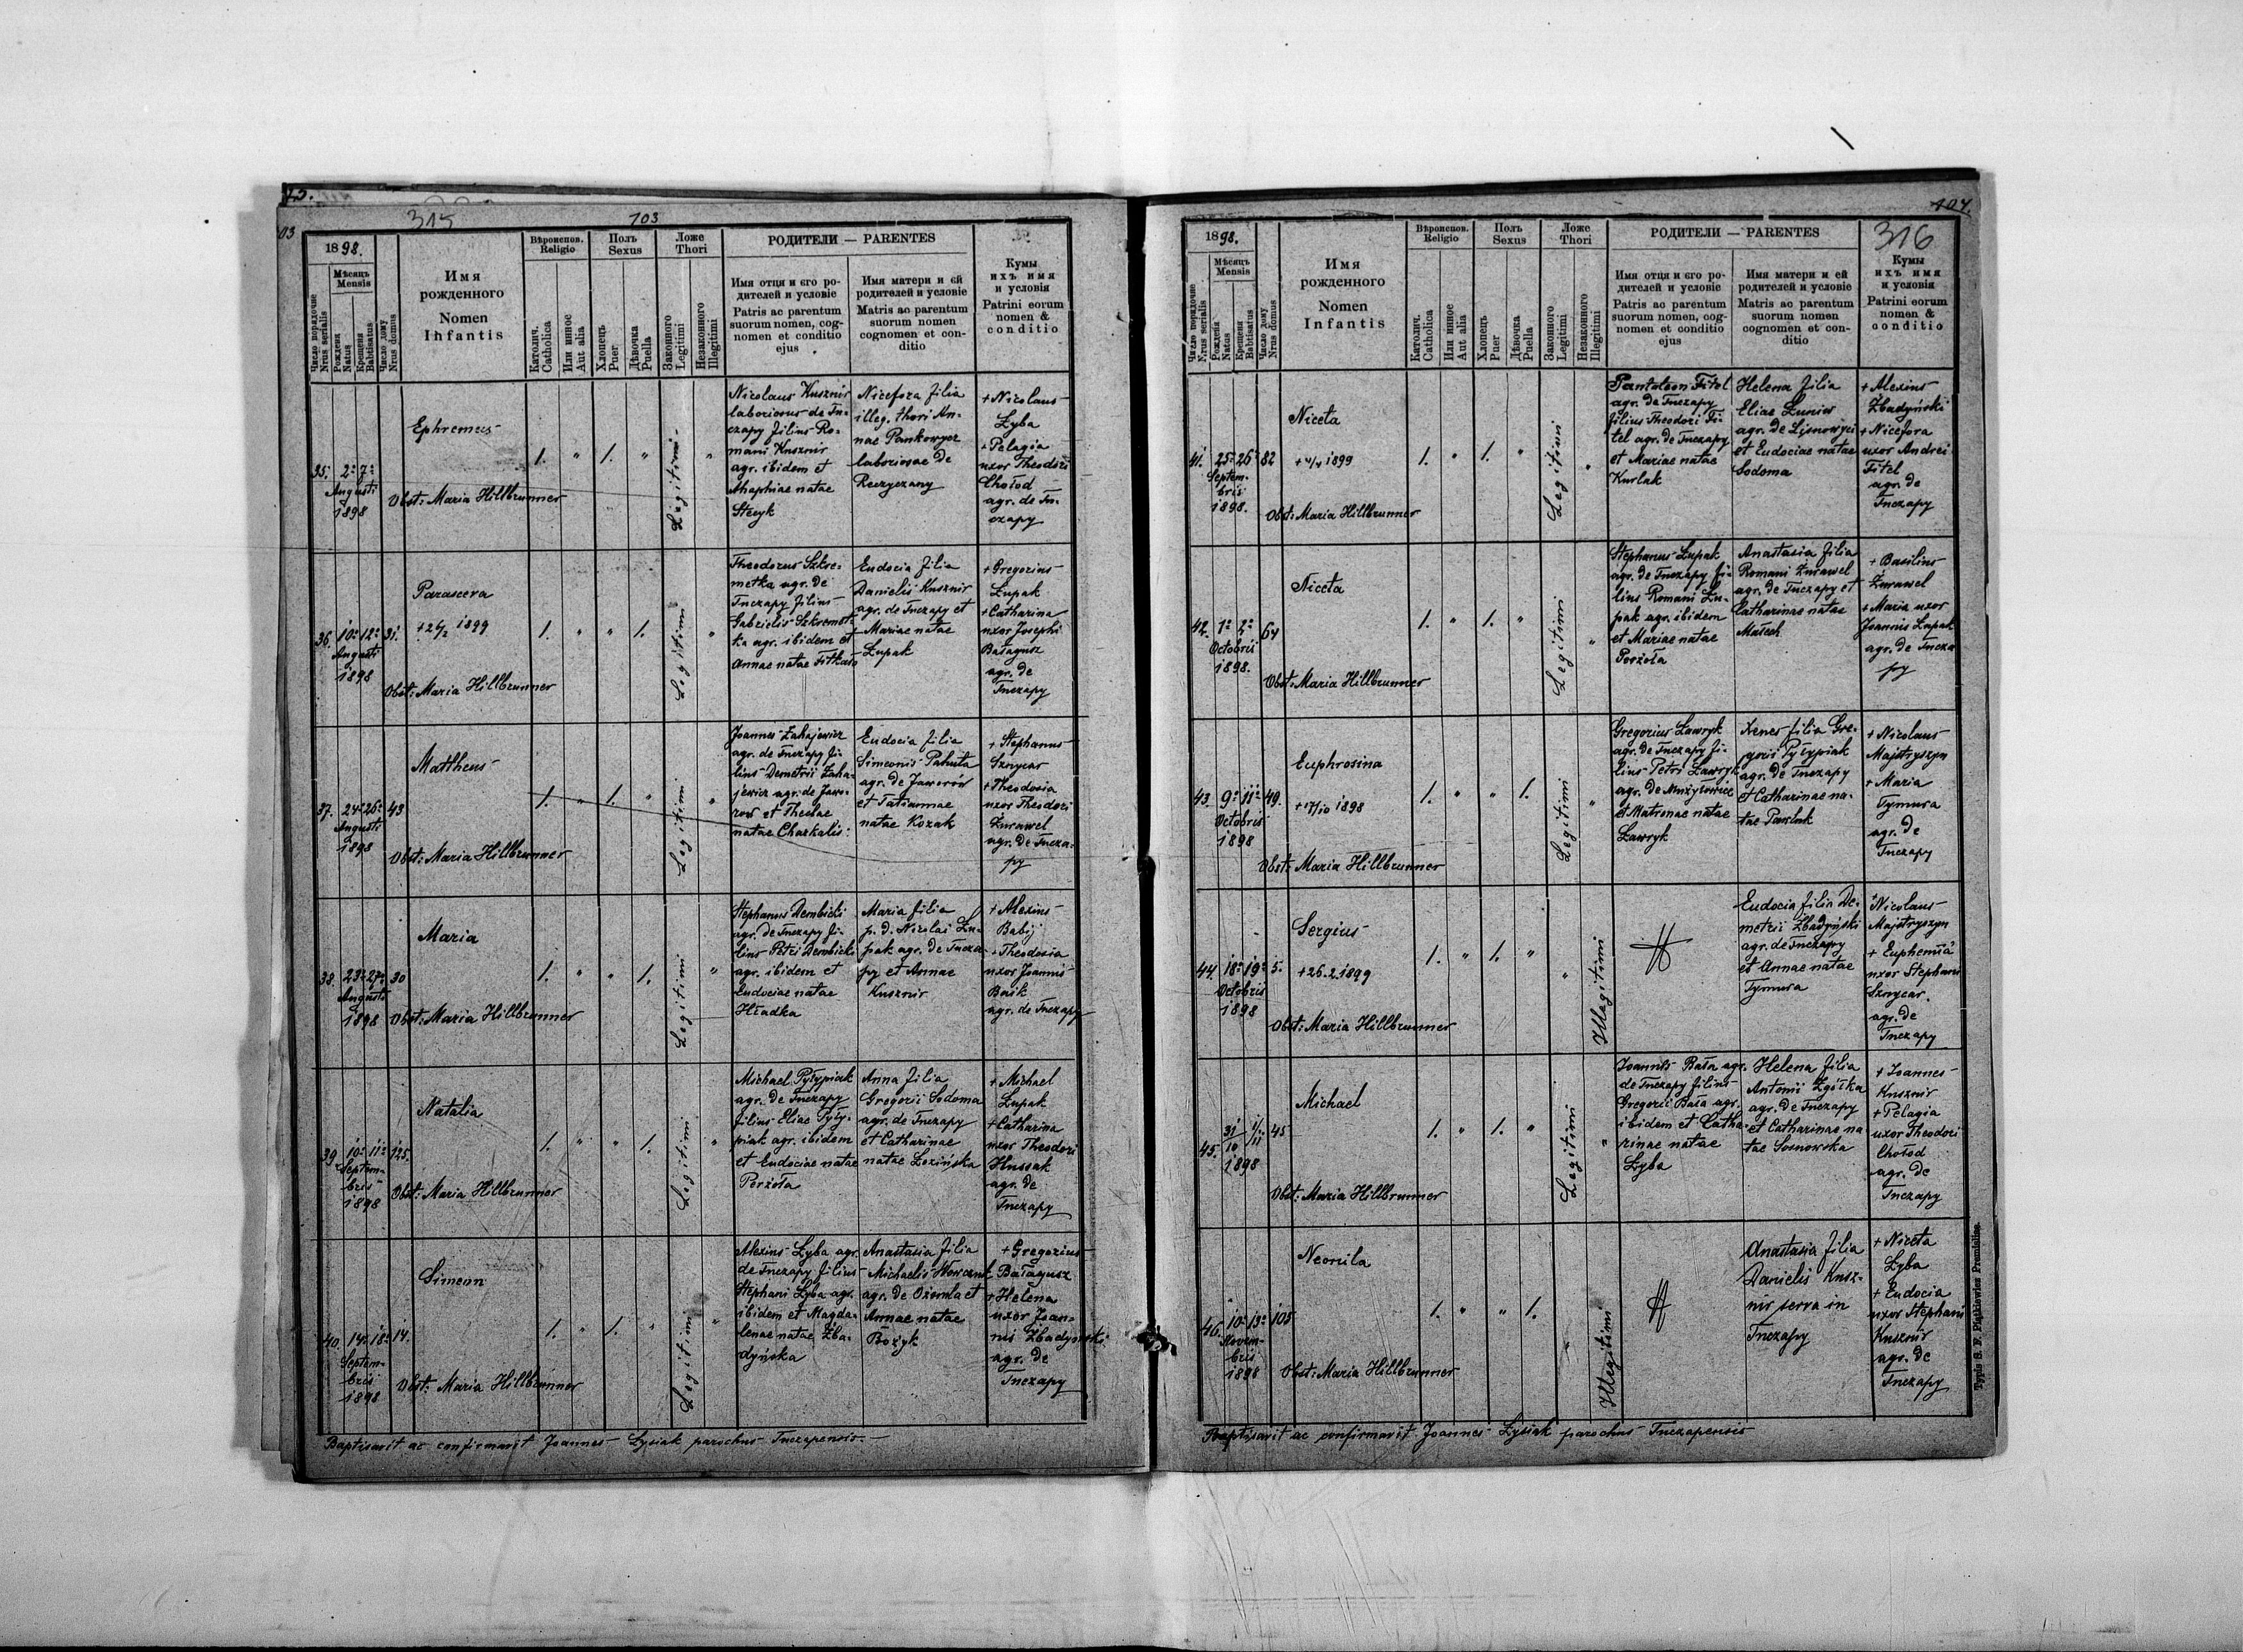 315
103
03
1898.
Число порядочне
Nrus serialis
Мѣсяцъ
Mensis
Рожденя
Natus
Крещеня
Babtisatus
Число дому
Nrus domus
Имя
рожденного
Nomen
Infantis
Вѣроиспов.
Religio
Католич.
Catholica
Или инное
Aut alia
Полъ
Sexus
Хлопецъ
Puer
Дѣвочка
Puella
Ложе
Thori
Законного
Legitimi
Незаконного
Illegitimi
РОДИТЕЛИ — PARENTES
Имя отца и єго ро-
дителей и условіе
Patris ac parentum
suorum nomen, cog-
nomen et conditio
ejus
Имя матери и єй
родителей и условіе
Matris ac parentum
suorum nomen
cognomen et con-
ditio
Кумы
ихъ имя
и условія
Patrini eorum
nomen &
conditio
35.
2a 7a
Augusti
1898
Ephremus
Obst: Maria Hillbrunner
1. " 1. "
Legitimi
"
Nicolaus Kusznir
laboriosus de Tu-
czapy filius Ro-
mani Kusznir
agr. ibidem et
Ahaphiae natae
Stecyk
Nicefora filia
illeg. thori An-
nae Pankowycz
laboriosae de
Reczyczany
+ Nicolaus
Łyba
+ Pelagia
uxor Theodori
Chołod
agr. de Tu-
czapy
36.
10a 12a
Augusti
1898
31.
Parasceva
+ 26/2 1899
Obst: Maria Hillbrunner
1. " " 1.
Legitimi
"
Theodorus Szkre-
metka agr. de
Tuczapy filius
Gabrielis Szkremet-
ka agr. ibidem et
Annae natae
Eudocia filia
Danielis Kusznir
agr. de Tuczapy et
Mariae natae
Łupak
+ Gregorius
Łupak
+ Catharina
uxor Josephi
Bałagusz
agr. de
Tuczapy
37.
24a 26a
Augusti
1898
43
Mattheus
Obst: Maria Hillbrunner
1. " 1. "
Legitimi
"
Joannes Zahajewicz
agr. de Tuczapy fi-
lius Demetrii Zaha-
jewicz agr. de Jawo-
row et Theclae
natae Charkalis:
Eudocia filia
Simeonis Pahuta
agr. de Jaworów
et Tatiannae
natae Kozak
+ Stephanus
Sznycar
+ Theodosia
uxor Theodori
Żurawel
agr. de Tucza-
py
38.
23a 27a
Augusti
1898
30
Maria
Obst: Maria Hillbrunner
1. " " 1.
Legitimi
"
Stephanus Dembicki
agr. de Tuczapy fi-
lius Petri Dembicki
agr. ibidem et
Eudociae natae
Hładka
Maria filia
p. d. Nicolai Łu-
pak agr. de Tucza-
py et Annae
Kusznir
+ Alexius
Babij
+ Theodosia
uxor Joannis
Buik
agr. de Tuczapy
39
10a 11a
Septem-
bris
1898
125.
Natalia
Obst: Maria Hillbrunner
1. " " 1.
Legitimi
"
Michael Pyłypiak
agr. de Tuczapy
filius Eliae Pyły-
piak agr. ibidem
et Eudociae natae
Perżoła
Anna filia
Gregorii Sodoma
agr. de Tuczapy
et Catharinae
natae Łozińska
+ Michael
Łupak
+ Catharina
uxor Theodori
Hussak
agr. de
Tuczapy
40.
14a 18a
Septem-
bris
1898
14.
Simeon
Obst: Maria Hillbrunner
1. " 1. "
Legitimi
"
Alexius Łyba agr.
de Tuczapy filius
Stephani Łyba agr.
ibidem et Magda-
lenae natae Zba-
dyńska
Anastasia filia
Michaelis
agr. de Ożomla et
Annae natae
Bożyk
+ Gregorius
Bałagusz
+ Helena
uxor Joan-
nis Zbadyński
agr. de
Tuczapy
Baptisavit ac confirmavit Joannes Łysiak parochus Tuczapensis.
104.
316
1898.
Число порядочне
Nrus serialis
Мѣсяцъ
Mensis
Рожденя
Natus
Крещеня
Babtisatus
Число дому
Nrus domus
Имя
рожденного
Nomen
Infantis
Вѣроиспов.
Religio
Католич.
Catholica
Или инное
Aut alia
Полъ
Sexus
Хлопецъ
Puer
Дѣвочка
Puella
Ложе
Thori
Законного
Legitimi
Незаконного
Illegitimi
РОДИТЕЛИ — PARENTES
Имя отца и єго ро-
дителей и условіе
Patris ac parentum
suorum nomen, cog-
nomen et conditio
ejus
Имя матери и єй
родителей и условіе
Matris ac parentum
suorum nomen
cognomen et con-
ditio
Кумы
ихъ имя
и условія
Patrini eorum
nomen &
conditio
41.
25a 26a
Septem-
bris
1898.
82
Niceta
1899
Obst: Maria Hillbrunner
1. " 1. "
Legitimi
"
Pantaleon Fitel
agr. de Tuczapy
filius Theodori Fi-
tel agr. de Tuczapy
et Mariae natae
Kurlak
Helena filia
Eliae Łuniw
agr. de
et Eudociae natae
Sodoma
+ Alexius
Zbadyński
+ Nicefora
uxor Andrei
Fitel
agr. de
Tuczapy
42.
1a 2a
Octobris
1898.
64
Niceta
Obst: Maria Hillbrunner
1. " 1. "
Legitimi
"
Stephanus Łupak
agr. de Tuczapy fi-
lius Romani Łu-
pak agr. ibidem
et Mariae natae
Perżoła
Anastasia filia
Romani Żurawel
agr. de Tuczapy et
Catharinae natae
Małech
+ Basilius
Żurawel
+ Maria uxor
Joannis Łupak
agr. de Tucza
py
43.
9a 11a
Octobris
1898
49.
Euphrosina
+ 17/10 1898
Obst: Maria Hillbrunner
1. " " 1.
Legitimi
"
Gregorius Ławryk
agr. de Tuczapy fi-
lius Petri Ławryk
agr. de Mużyłowice
et Matronae natae
Ławryk
Xenes filia Gre-
gorii Pyłypiak
agr. de Tuczapy
et Catharinae na-
tae Pawluk
+ Nicolaus
Majstryszyn
+ Maria
Tymura
agr. de
Tuczapy
44.
18a 19a
Octobris
1898
5.
Sergius
+ 26.2.1899
Obst: Maria Hillbrunner
1. " 1. "
"
Illegitimi
Eudocia filia De-
metrii Zbadyński
agr. de Tuczapy
et Annae natae
Tymura
+ Nicolaus
Majstryszyn
+ Euphemia
uxor Stephani
Sznycar.
agr. de
Tuczapy
45.
31/10 1/11
1898
45
Michael
Obst: Maria Hillbrunner
1. " 1. "
Legitimi
"
Joannes Bała agr.
de Tuczapy filius
Gregorii Bała agr.
ibidem et Catha-
rinae natae
Łyba
Helena filia
Antonii Zgółka
agr. de Tuczapy
et Catharinae na-
tae Sosnowska
+ Joannes
Kusznir
+ Pelagia
uxor Theodori
Chołod
agr. de
Tuczapy
46.
10a 13a
Novem-
bris
1898
105
Neonila
Obst: Maria Hillbrunner
1. " " 1.
"
Illegitimi
Anastasia filia
Danielis Kusz-
nir serva in
Tuczapy
+ Niceta
Łyba
+ Eudocia
uxor Stephani
Kusznir
agr. de
Tuczapy
Baptisavit ac confirmavit Joannes Łysiak parochus Tuczapensis
Typis S. F. Piątkiewicz Premisliae.